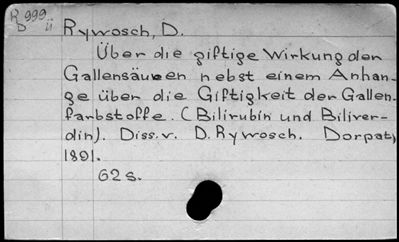 R 999
D ü
Rywosch, D.
Über die giftige Wirkung der
Gallensäuren nebst einem Anhan-
ge über die Giftigkeit der Gallen.
farbstoffe. (Bilirubin und Biliver-
din). Diss. v. D. Rywosch. Dorpat,
1891.
62 s.